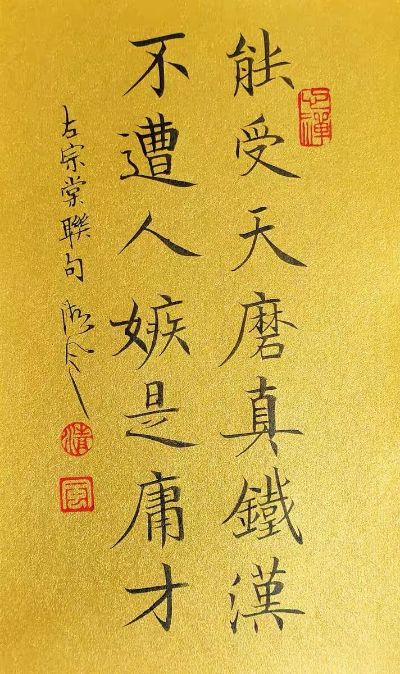 能受天磨真鐵漢
不遭人嫉是庸才
左宗棠聯句